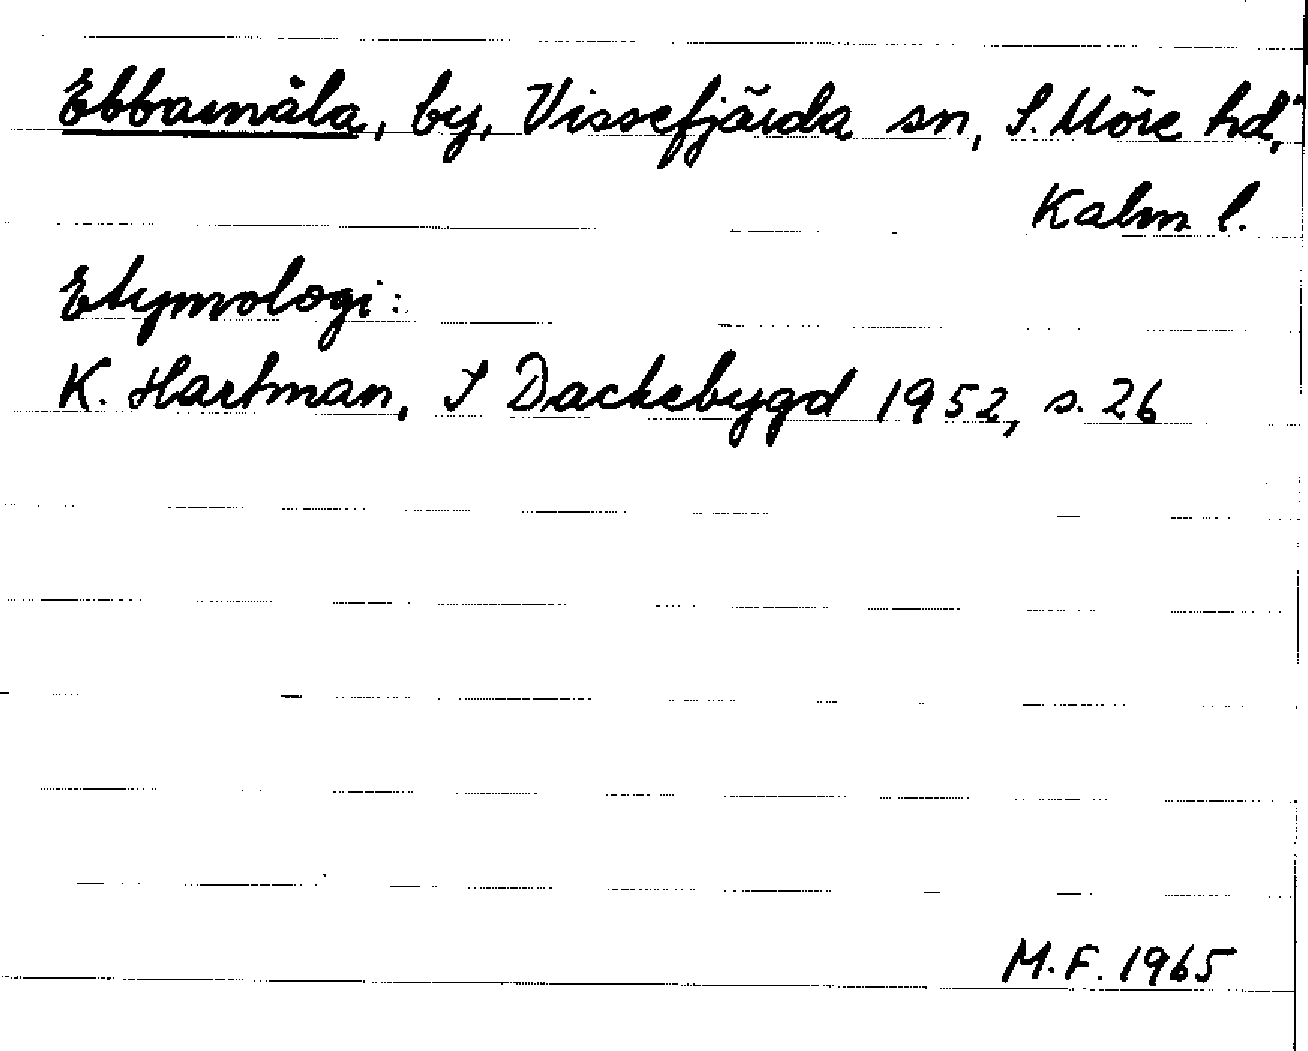 Ebbamåla, by, Vissefjärda sn, S. Möre hd,
Kalm l.
Etymologi:
K. Hartman, I Dackebygd 1952, s. 26
M.F. 1965